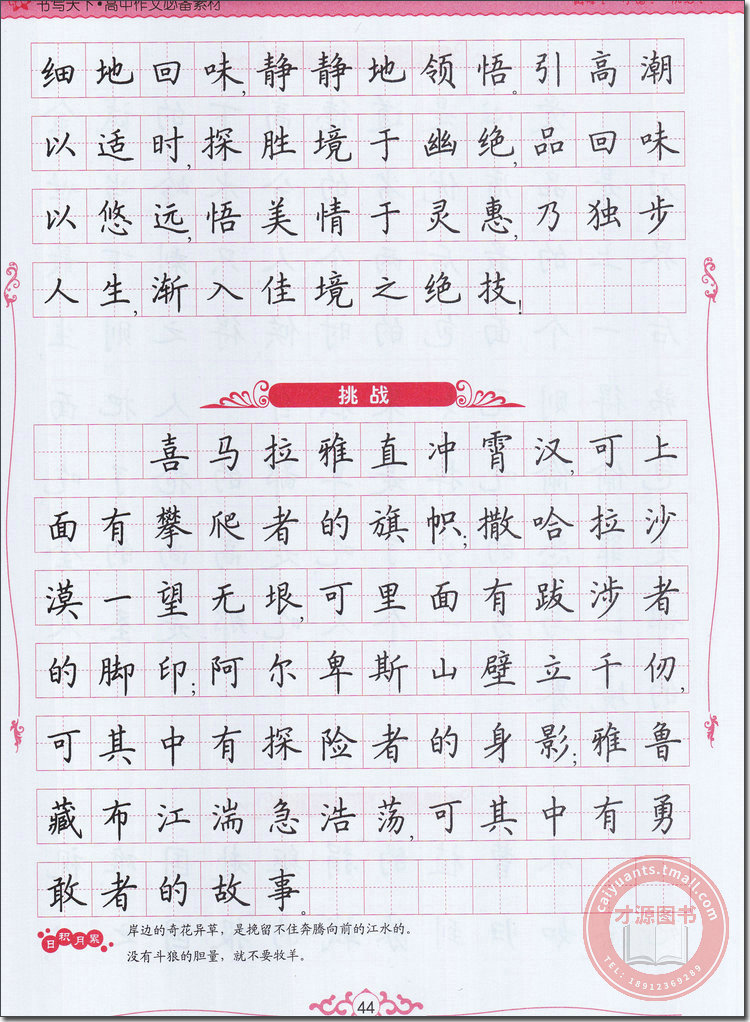 书写天下•高中作文必备素材
细地回味,静静地领悟。引高潮
以适时,探胜境于幽绝,品回味
以悠远,悟美情于灵惠,乃独步
人生,渐入佳境之绝技!
挑战
喜马拉雅直冲霄汉,可上
面有攀爬者的旗帜;撒哈拉沙
漠一望无垠,可里面有跋涉者
的脚印;阿尔卑斯山壁立千仞,
可其中有探险者的身影;雅鲁
藏布江湍急浩荡,可其中有勇
敢者的故事。
日积月累
岸边的奇花异草，是挽留不住奔腾向前的江水的。
没有斗狼的胆量，就不要牧羊。
44
caiyuants.tmall.com
才源图书
TEL: 18912369289